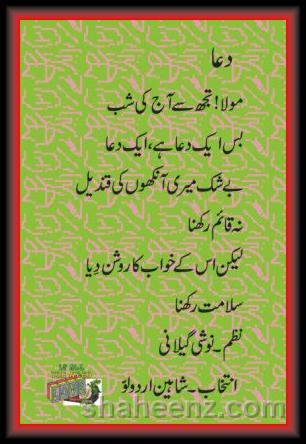 دعا
مولا! تجھ سے آج کی شب
بس ایک دعا ہے، ایک دعا
بے شک میری آنکھوں کی قندیل
نہ قائم رکھنا
لیکن اس کے خواب کا روشن دِیا
سلامت رکھنا
نظم ۔ نوشی گیلانی
انتخاب ۔ شاہین اردولوّ
shaheenz.com